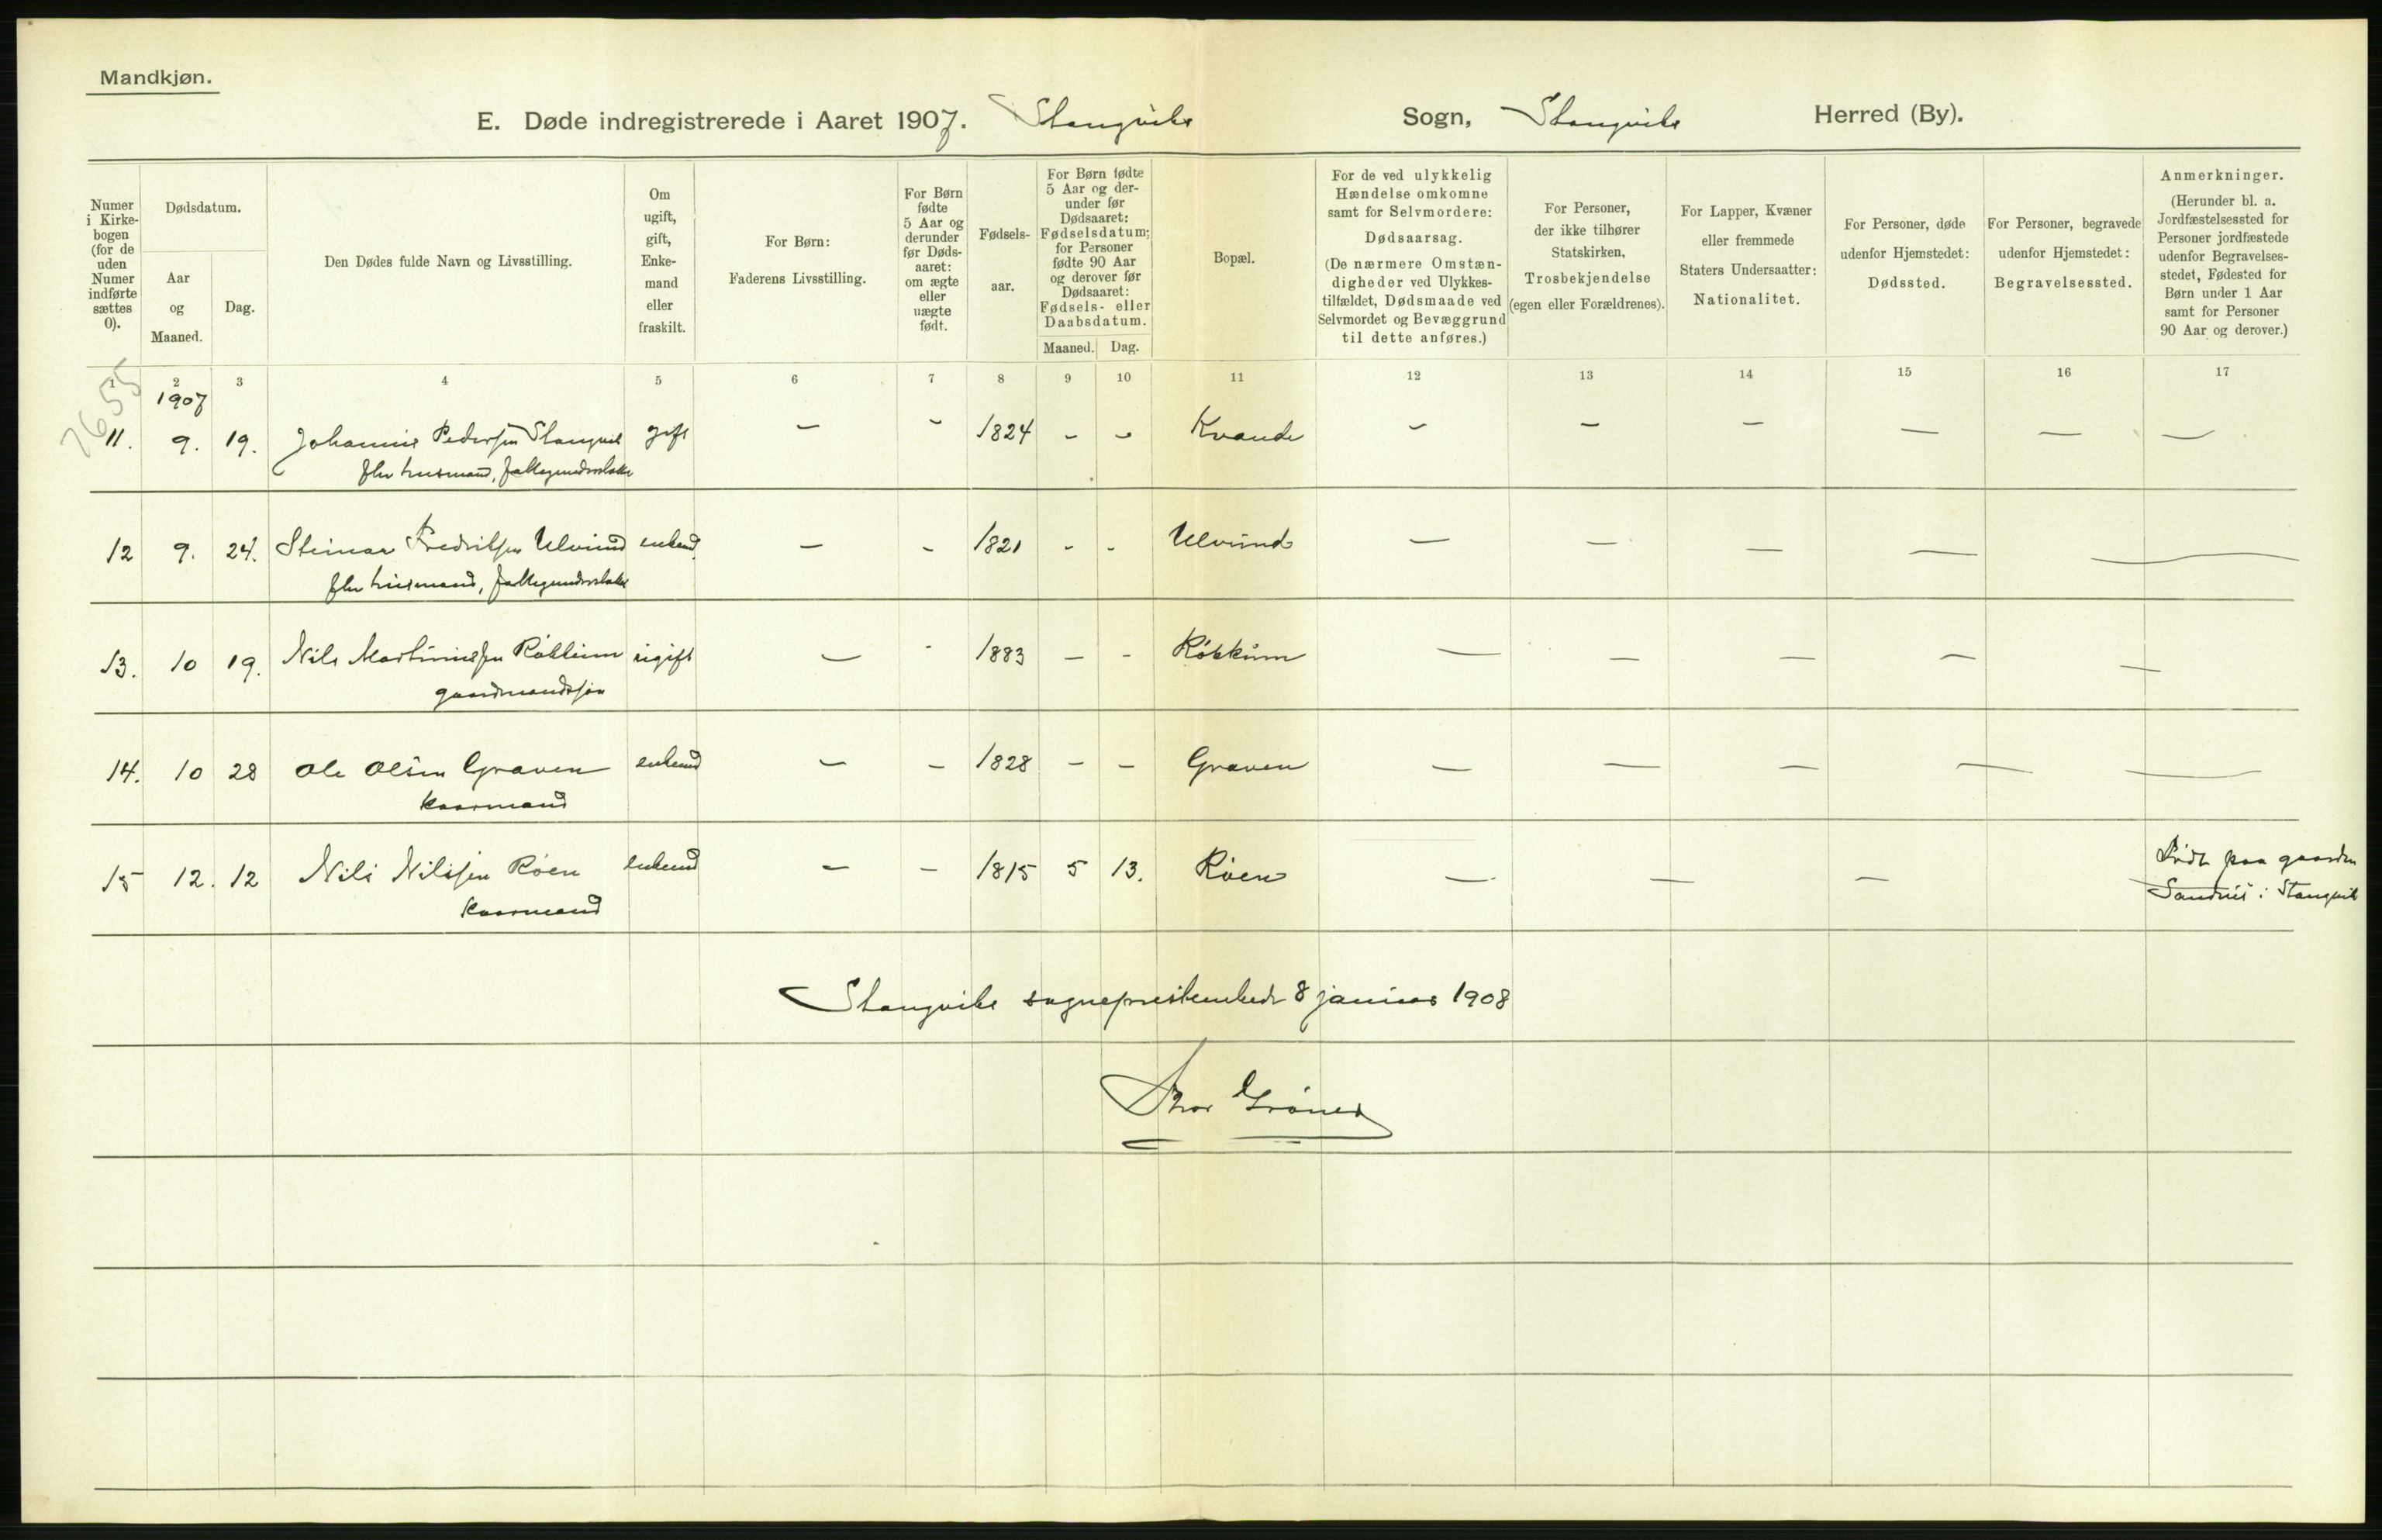 Mandkjøn.
E. Døde indregistrerede i Aaret 1907. Stangvik Sogn, Stangvik Herred (By).
Numer i Kirkebogen (for de uden Numer indførte sættes 0).
Dødsdatum.
Aar og Maaned.
Dag.
Den Dødes fulde Navn og Livsstilling.
Om ugift, gift, Enkemand eller fraskilt.
For Børn: Faderens Livsstilling.
For Børn fødte 5 Aar og derunder før Dødsaaret: om ægte eller uægte født.
Fødselsaar.
For Børn fødte 5 Aar og derunder før Dødsaaret: Fødselsdatum; for Personer fødte 90 Aar og derover før Dødsaaret: Fødsels- eller Daabsdatum.
Maaned. Dag.
Bopæl.
For de ved ulykkelig Hændelse omkomne samt for Selvmordere: Dødsaarsag. (De nærmere Omstændigheder ved Ulykkestilfældet, Dødsmaade ved Selvmordet og Bevæggrund til dette anføres.)
For Personer, der ikke tilhører Statskirken, Trosbekjendelse (egen eller Forældrenes).
For Lapper, Kvæner eller fremmede Staters Undersaatter: Nationalitet.
For Personer, døde udenfor Hjemstedet: Dødssted.
For Personer, begravede udenfor Hjemstedet: Begravelsessted.
Anmerkninger. (Herunder bl. a. Jordfæstelsessted for Personer jordfæstede udenfor Begravelsesstedet, Fødested for Børn under 1 Aar samt for Personer 90 Aar og derover.)
1 2 3 4 5 6 7 8 9 10 11 12 13 14 15 16 17
7655
1907
11. 9. 19. Johannes Pedersen Stangvik gift — - 1824 - - Kvande — — — — — —
husmand,
12 9. 24. Steinar Fredriksen Ulvund enkemd — - 1821 - - Ulvund — — — — —
husmand,
13. 10 19. Nils Martinussen Røkkum ugift — - 1883 — - Røkkum — — — — —
gaardmandssøn
14. 10 28 Ole Olsen Graven enkemd — — 1828 - - Graven — — — — —
kaarmand
15 12. 12 Nils Nilssen Røen enkemd — — 1815 5 13. Røen — — — Født paa gaarden
kaarmand Sandnes i Stangvik
Stangvik sogneprestembede 8 januar 1908
Thor Grøner